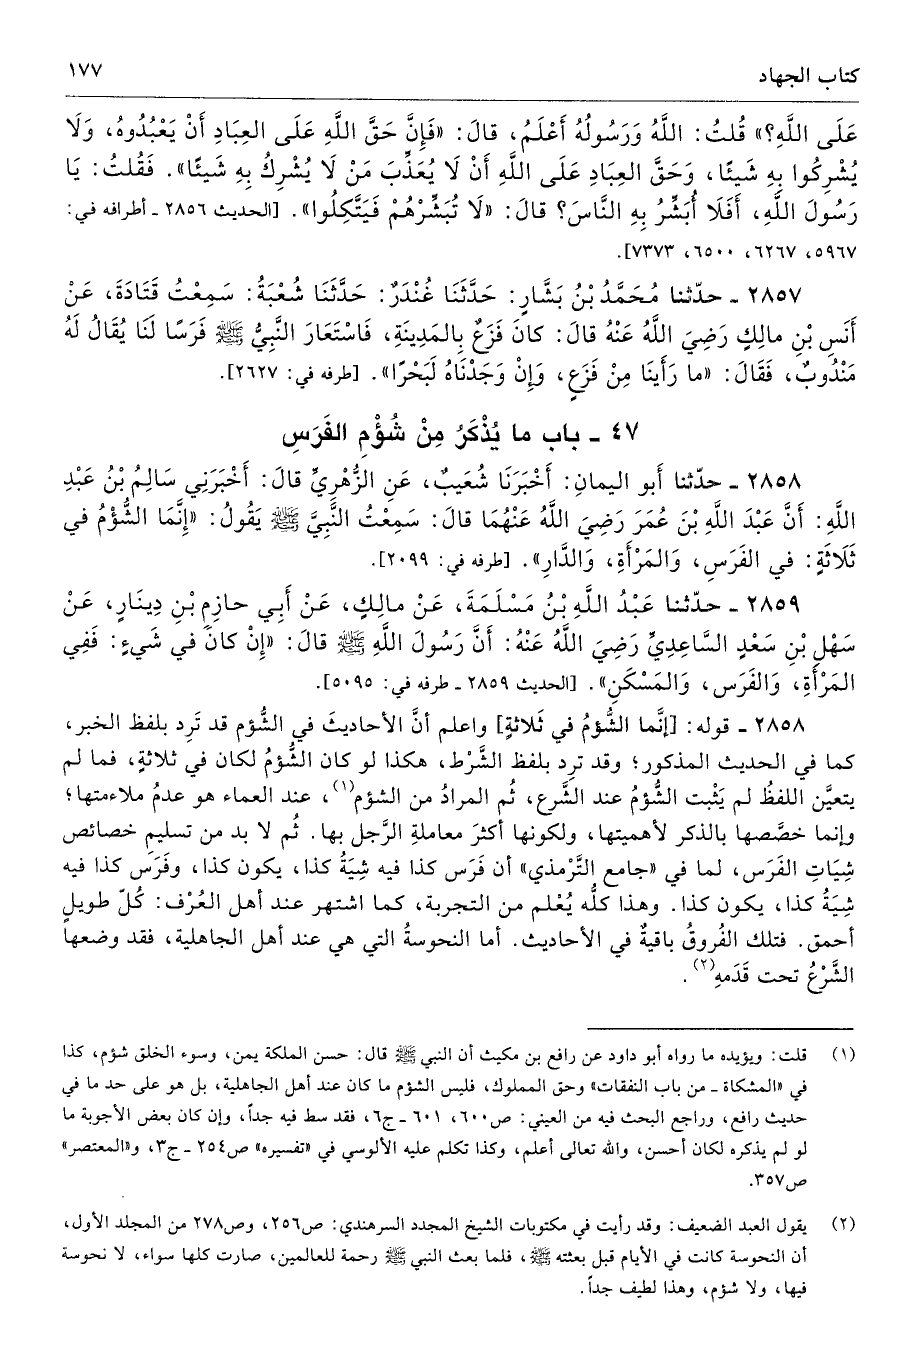 كتاب الجهاد
١٧٧
عَلَى اللَّهِ؟» قُلتُ: اللَّهُ وَرَسُولُهُ أَعْلَمُ، قالَ: «فَإِنَّ حَقَّ اللَّهِ عَلَى العِبَادِ أَنْ يَعْبُدُوهُ، وَلَا
يُشْرِكُوا بِهِ شَيئًا، وَحَقَّ العِبَادِ عَلَى اللَّهِ أَنْ لَا يُعَذِّبَ مَنْ لَا يُشْرِكُ بِهِ شَيئًا». فَقُلتُ: يَا
رَسُولَ اللَّهِ، أَفَلَا أُبَشِّرُ بِهِ النَّاسَ؟ قالَ: «لَا تُبَشِّرْهُمْ فَيَتَّكِلُوا». [الحديث ٢٨٥٦ ـ أطرافه في:
٥٩٦٧، ٦٢٦٧، ٦٥٠٠، ٧٣٧٣].
٢٨٥٧ ـ حدّثنا مُحَمَّدُ بْنُ بَشَّارٍ: حَدَّثَنَا غُنْدَرٌ: حَدَّثَنَا شُعْبَةُ: سَمِعْتُ قَتَادَةَ، عَنْ
أَنَسِ بْنِ مالِكٍ رَضِيَ اللَّهُ عَنْهُ قالَ: كانَ فَزَعٌ بِالمَدِينَةِ، فَاسْتَعَارَ النَّبِيُّ ﷺ فَرَسًا لَنَا يُقَالُ لَهُ
مَنْدُوبٌ، فَقَالَ: «ما رَأَينَا مِنْ فَزَعٍ، وَإِنْ وَجَدْنَاهُ لَبَحْرًا». [طرفه في: ٢٦٢٧].
٤٧ ـ باب ما يُذْكَرُ مِنْ شُؤْمِ الفَرَسِ
٢٨٥٨ ـ حدّثنا أَبو اليمانِ: أَخْبَرَنَا شُعَيبٌ، عَنِ الزُّهْرِيِّ قالَ: أَخْبَرَنِي سَالِمُ بْنُ عَبْدِ
اللَّهِ: أَنَّ عَبْدَ اللَّهِ بْنَ عُمَرَ رَضِيَ اللَّهُ عَنْهُمَا قالَ: سَمِعْتُ النَّبِيَّ ﷺ يَقُولُ: «إِنَّمَا الشُّؤْمُ في
ثَلَاثَةٍ: في الفَرَسِ، وَالمَرْأَةِ، وَالدَّارِ». [طرفه في: ٢٠٩٩].
٢٨٥٩ ـ حدّثنا عَبْدُ اللَّهِ بْنُ مَسْلَمَةَ، عَنْ مالِكٍ، عَنْ أَبِي حازِمِ بْنِ دِينَارٍ، عَنْ
سَهْلِ بْنِ سَعْدٍ السَّاعِدِيِّ رَضِيَ اللَّهُ عَنْهُ: أَنَّ رَسُولَ اللَّهِ ﷺ قالَ: «إِنْ كانَ في شَيءٍ: فَفِي
المَرْأَةِ، وَالفَرَسِ، وَالمَسْكَنِ». [الحديث ٢٨٥٩ ـ طرفه في: ٥٠٩٥].
٢٨٥٨ ـ قوله: [إنَّما الشُّؤمُ في ثَلاثةٍ] واعلم أنَّ الأحاديثَ في الشُّؤم قد تَرِد بلفظ الخبر،
كما في الحديث المذكور؛ وقد ترِد بلفظ الشَّرْط، هكذا لو كان الشُّؤمُ لكان في ثلاثةٍ، فما لم
يتعيَّن اللفظُ لم يَثْبت الشُّؤمُ عند الشَّرع، ثُم المرادُ من الشؤم(١)، عند العماء هو عدمُ ملاءمتها؛
وإنما خصَّصها بالذكر لأهميتها، ولكونها أكثرَ معاملةِ الرَّجل بها. ثُم لا بد من تسليم خصائص
شِيَاتِ الفَرَس، لما في «جامع التَّرْمذي» أن فَرَس كذا فيه شِيَةُ كذا، يكون كذا، وفَرَس كذا فيه
شِيَةُ كذا، يكون كذا. وهذا كلُّه يُعْلم من التجربة، كما اشتهر عند أهل العُرْف: كُلّ طويلٍ
أحمق. فتلك الفُروقُ باقيةٌ في الأحاديث. أما النحوسةُ التي هي عند أهل الجاهلية، فقد وضعها
الشَّرْعُ تحت قَدَمهِ(٢).
(١) قلت: ويؤيده ما رواه أبو داود عن رافع بن مكيث أن النبي ﷺ قال: حسن الملكة يمن، وسوء الخلق شؤم، كذا
في «المشكاة ـ من باب النفقات» وحق المملوك، فليس الشؤم ما كان عند أهل الجاهلية، بل هو على حد ما في
حديث رافع، وراجع البحث فيه من العيني: ص٦٠٠، ٦٠١ ـ ج٦، فقد سط فيه جداً، وإن كان بعض الأجوبة ما
لو لم يذكره لكان أحسن، والله تعالى أعلم، وكذا تكلم عليه الألوسي في «تفسيره» ص٢٥٤ ـ ج٣، و«المعتصر»
ص٣٥٧.
(٢) يقول العبد الضعيف: وقد رأيت في مكتوبات الشيخ المجدد السرهندي: ص٢٥٦، وص٢٧٨ من المجلد الأول،
أن النحوسة كانت في الأيام قبل بعثته ﷺ، فلما بعث النبي ﷺ رحمة للعالمين، صارت كلها سواء، لا نحوسة
فيها، ولا شؤم، وهذا لطيف جداً.